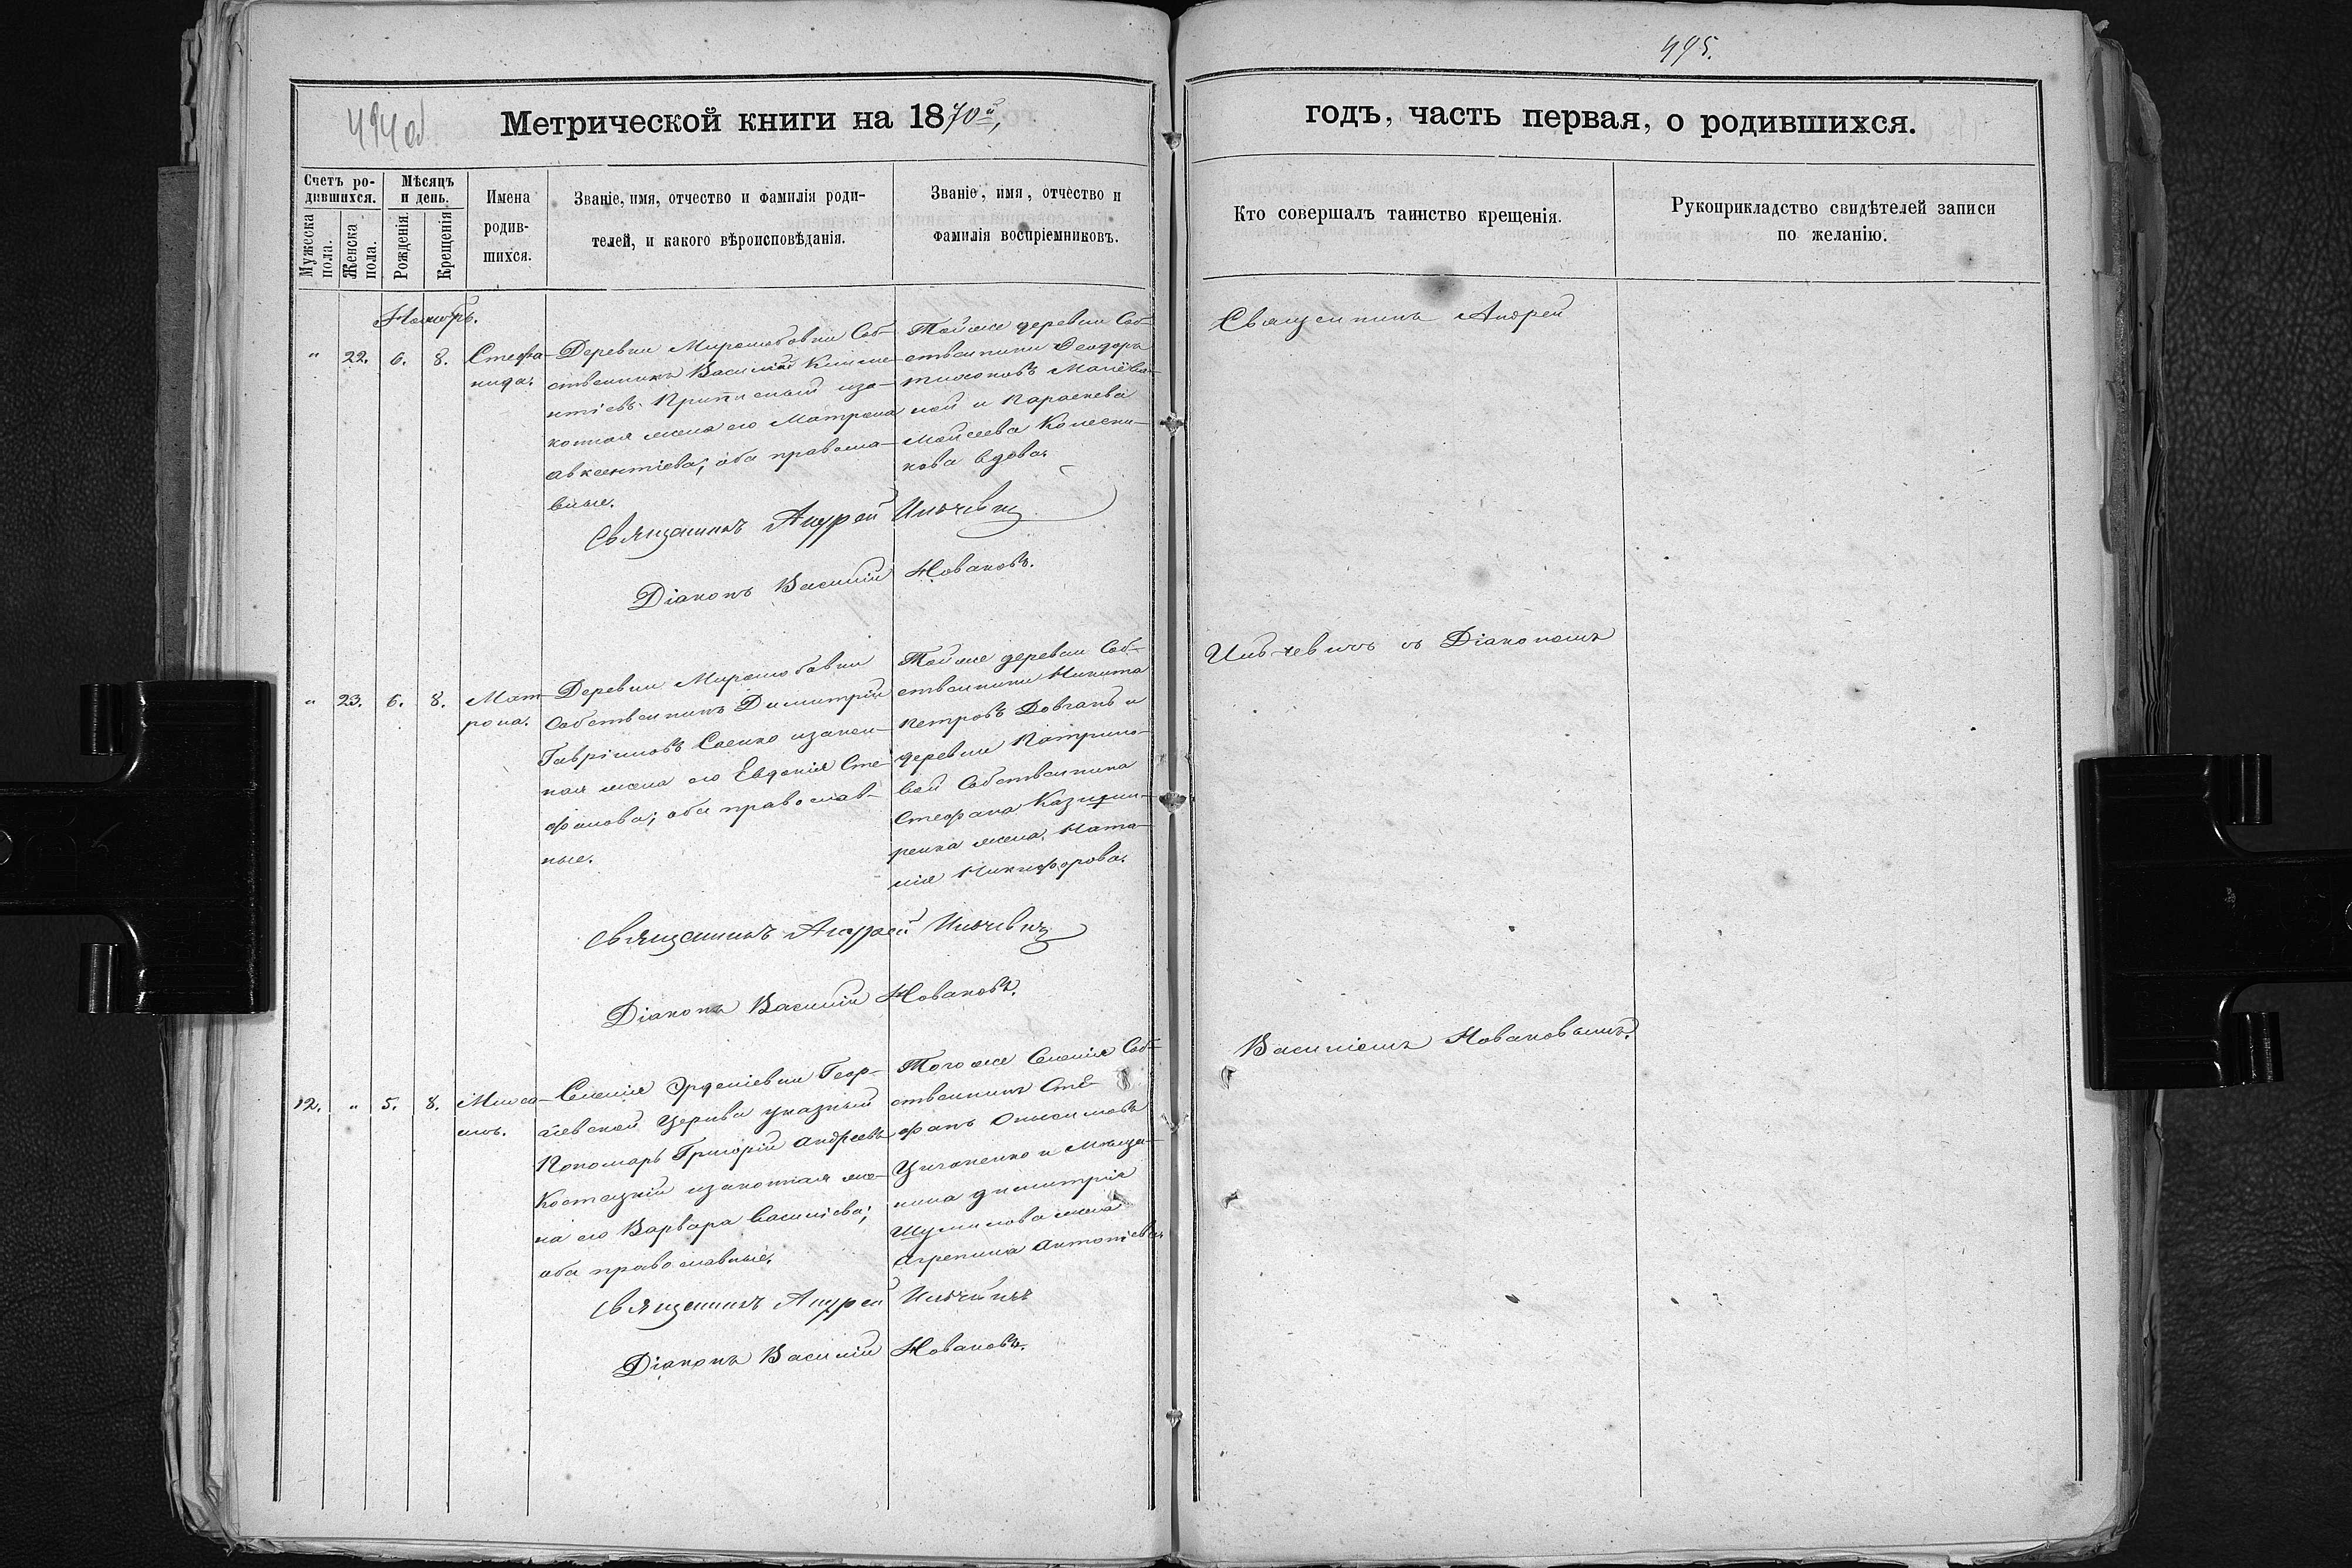 495.
494 об
Метрической книги на 1870й,
годъ, часть первая, о родившихся.
Счетъ ро-
дившихся.
Мужеска
пола.
Женска
пола.
Мѣсяцъ
и день.
Рожденія.
Крещенія
Имена
родив-
шихся.
Званіе, имя, отчество и фамилія роди-
телей, и какого вѣроисповѣданія.
Званіе, имя, отчество и
фамилія воспріемниковъ.
Кто совершалъ таинство крещенія.
Рукоприкладство свидѣтелей записи
по желанію.
Ноябрь.
" 22. 6. 8. Стефа-
нида.
Деревни Миролюбовки Соб-
ственникъ Василій Климе-
нтіевъ иза-
конная жена его Матрона
Авксентіева; оба правосла-
вные.
Тойже деревни Соб-
ственники Ѳеодоръ
Тихоновъ
и Параскева
Моисеева Колесни-
кова вдова.
Священникъ Андрей Ильчевич
Діаконъ Василій Новаковъ.
" 23. 6. 8. Мат-
рона.
Деревни Миролюбовки
Собственникъ Димитрій
Гавріиловъ Саенко изакон-
ная жена его Евдокія Сте-
фанова; оба православ-
ные.
Тойже деревни Соб-
ственники Никита
Петровъ Довгань и
деревни Катрино-
вой Собственника
Стефана
жена Ната-
лія Никифорова.
Священникъ Андрей Ильчевич
Діаконъ Василій Новаковъ.
12. " 5. 8. Миха-
илъ.
Селенія Ѳрделіевки Геор-
гіевской Церкви указный
Пономарь Григорій Андреевъ
Костецкій изаконная же-
на его Варвара Василіева;
оба православные.
Тогоже Селенія Соб-
ственникъ Сте-
фанъ Онисимовъ
Цигоненко и Мѣща-
нина Димитрія
Шумилова жена
Агрепина Антоніева.
Священникъ Андрей Ильчевич
Діаконъ Василій Новаковъ.
Священникъ Андрей
Ильчевичъ съ Діакономъ
Василіемъ Новаковымъ.